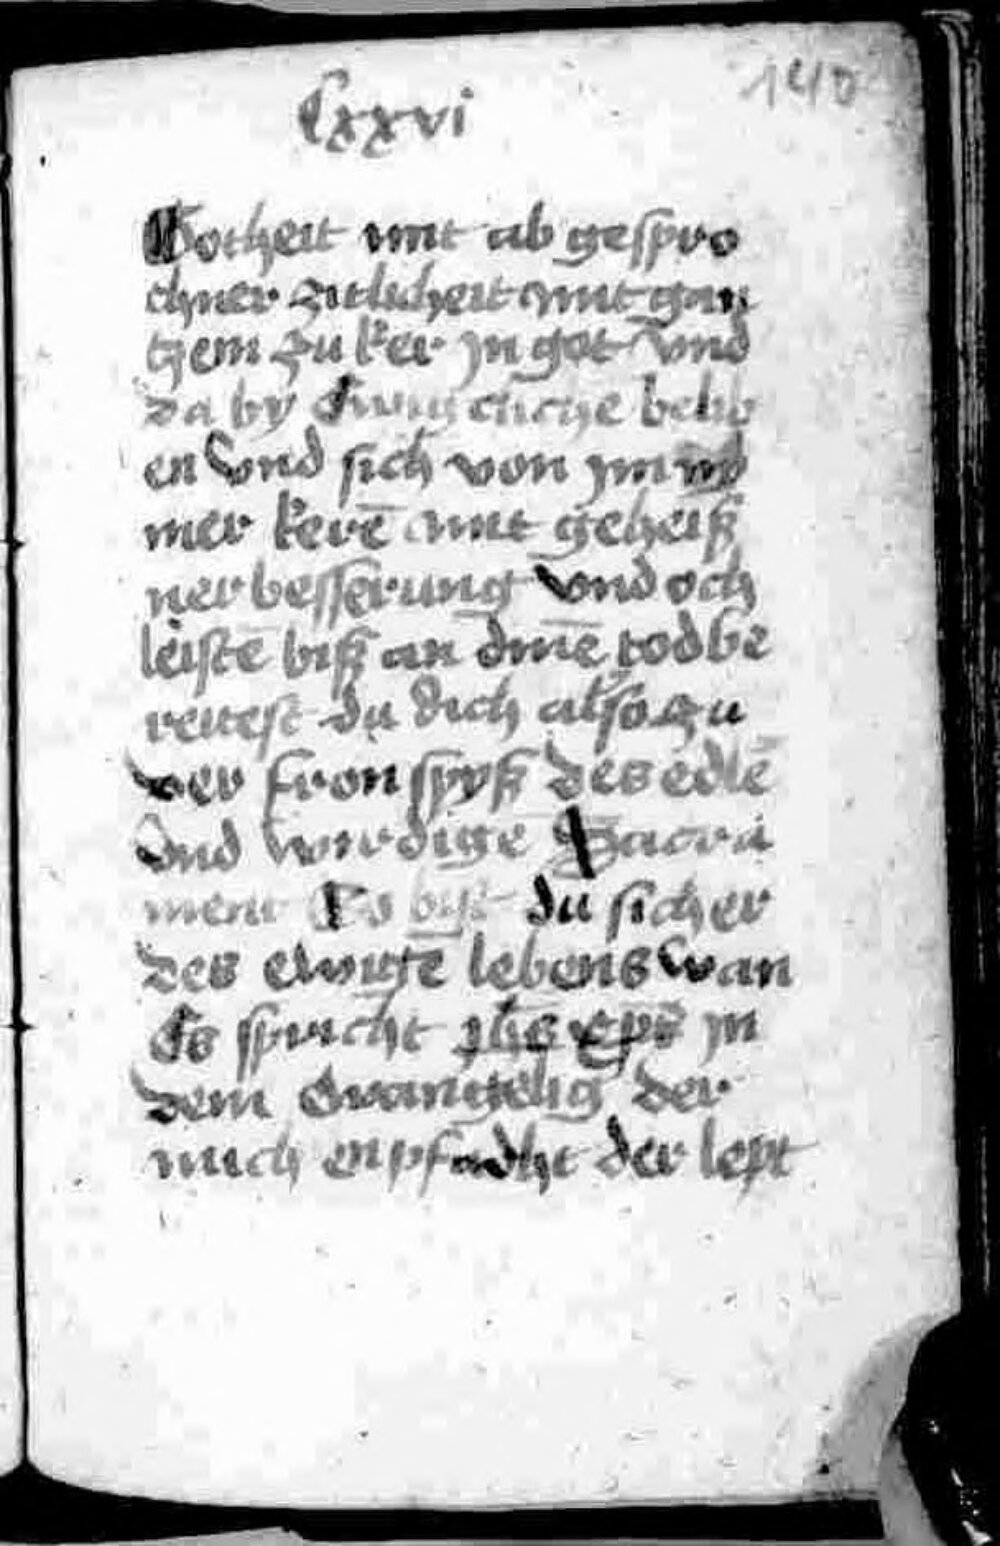 Cxxvi
140
Gotheit mit ab gespro
chner zitlicheit mit gan
tzem zu ker jn got vnd
da by
en vnd sich von jm
mer kerē mit geheiß
ner besserung vnd och
leistē biß an dinē tod be
reitest du dich also zu
der fronspyß des edlē
vnd wirdige Sacra
ment Es bist du sicher
des ewigē lebens wan
Es spricht jhs xp̄s jn
dem Ewangelig der
mich enpfacht der lept